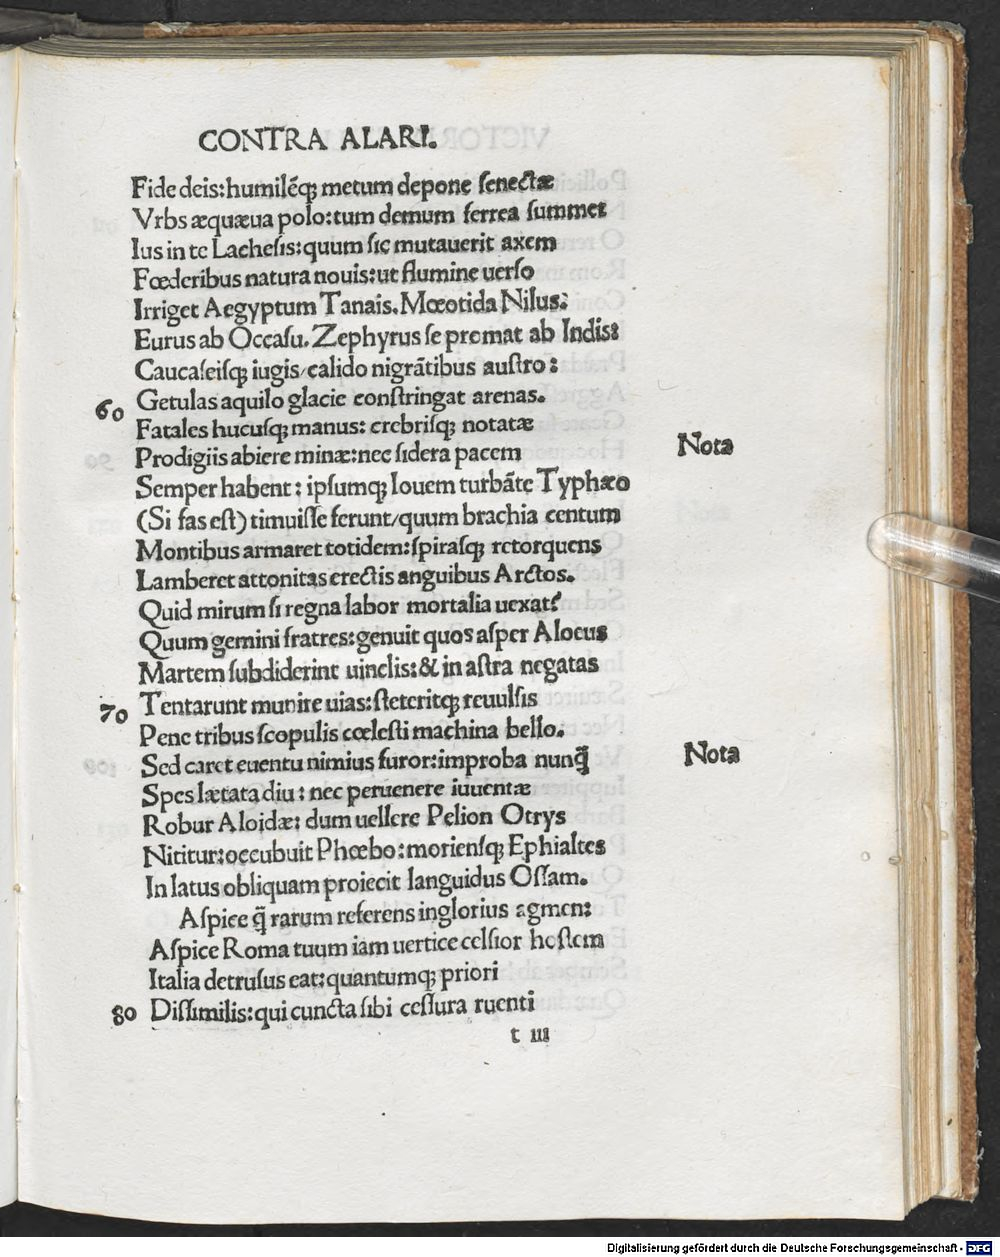 CONTRA ALARI.
Fide deis:humilẽq; metum depone ſenectæ
Vrbs æquæua polo:tum demum ferrea ſummet
Ius in te Lacheſis:quum ſic mutauerit axem
Fœderibus natura nouis:ut flumine uerſo
Irriget Aegyptum Tanais. Mœotida Nilus:
Eurus ab Occaſu. Zephyrus ſe promat ab Indis:
Caucaſeiſq; iugis/calido nigrãtibus auſtro:
60 Getulas aquilo glacie conſtringat arenas.
Fatales hucuſq; manus: crebriſq; notatæ
Prodigiis abiere minæ:nec ſidera pacem
Nota
Semper habent: ipſumq; Iouem turbãte Typhæo
(Si fas eſt) timuiſſe ferunt/quum brachia centum
Montibus armaret totidem:ſpiraſq; retorquens
Lamberet attonitas erectis anguibus Arctos.
Quid mirum ſi regna labor mortalia uexat?
Quum gemini fratres:genuit quos aſper Aloeus
Martem ſubdiderint uinclis:& in aſtra negatas
70 Tentarunt munire uias:ſteteritq; reuulſis
Pene tribus ſcopulis cœleſti machina bello.
Sed caret euentu nimius furor:improba nunq̃
Nota
Spes lætata diu: nec peruenere iuuentæ
Robur Aloidæ: dum uellere Pelion Otrys
Nititur:occubuit Phœbo:morienſq; Ephialtes
In latus obliquam proiecit languidus Oſſam.
Aſpice q̃ rarum referens inglorius agmen:
Aſpice Roma tuum iam uertice celſior hoſtem
Italia detruſus eat:quantumq; priori
80 Diſſimilis:qui cuncta ſibi ceſſura ruenti
t iii
Digitalisierung gefördert durch die Deutsche Forschungsgemeinschaft - DFG